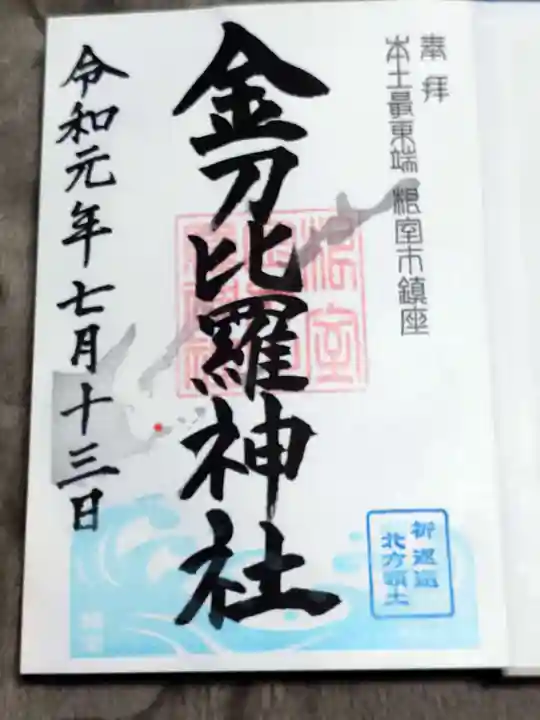 奉拝
本土最東端 根室市鎮座
金刀比羅神社
令和元年七月十三日
祈返還
北方領土